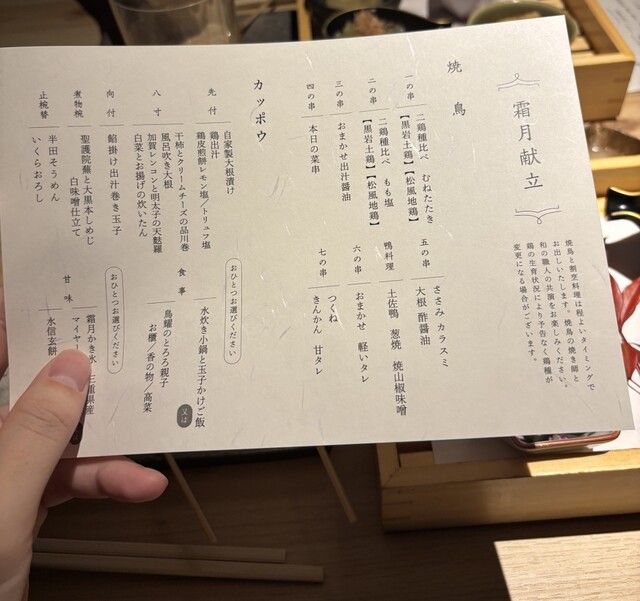 霜月献立
焼鳥と割烹料理は程よいタイミングで
お出しいたします。焼鳥の焼き師と
和の職人の共演をお楽しみください。
鶏の生育状況により予告なく鶏種が
変更になる場合がございます。
焼鳥
一の串 二鶏種比べ むねたたき
【黒岩土鶏】【松風地鶏】
二の串 二鶏種比べ もも塩
【黒岩土鶏】【松風地鶏】
三の串 おまかせ出汁醤油
四の串 本日の菜串
五の串 ささみ カラスミ
大根 酢醤油
鴨料理 土佐鴨 葱焼 焼山椒味噌
六の串 おまかせ 軽いタレ
七の串 つくね
きんかん 甘タレ
カッポウ
先付 自家製大根漬け
鶏出汁
鶏皮煎餅レモン塩／トリュフ塩
八寸 干柿とクリームチーズの品川巻
風呂吹き大根
加賀レンコンと明太子の天麩羅
白菜とお揚げの炊いたん
向付 餡掛け出汁巻き玉子
煮物椀 聖護院蕪と大黒本しめじ
白味噌仕立て
止椀替 半田そうめん
いくらおろし
おひとつお選びください
食事 水炊き小鍋と玉子かけご飯
又は
鳥燿のとろろ親子
お櫃／香の物／高菜
おひとつお選びください
甘味 霜月かき氷 三重県産
マイヤー
水信玄餅